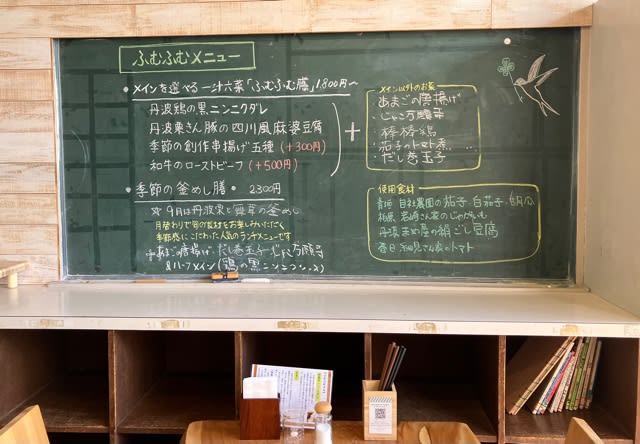 ふむふむメニュー
・メインを選べる一汁六菜「ふむふむ膳」1,800円〜
丹波鶏の黒ニンニクダレ
丹波栗さん豚の四川風麻婆豆腐
季節の創作串揚げ五種(+300円)
和牛のローストビーフ(+500円)
+
メイン以外のお菜
・あまごの唐揚げ
・じゃこ万願寺
・棒棒鶏
・茄子のトマト煮...
・だし巻玉子
・季節の釜めし膳・2300円
☆9月は丹波栗と舞茸の釜めし
月替わりで旬の食材をお楽しみいただく
季節感にこだわった人気のランチメニューです
あまごの唐揚げ・だし巻玉子・じゃこ万願寺
(鶏の黒ニンニクソース)
使用食材
自社農園の茄子・白茄子・
岩崎さん家のじゃがいも
丹波まめ屋の絹ごし豆腐
春日 さん家のトマト